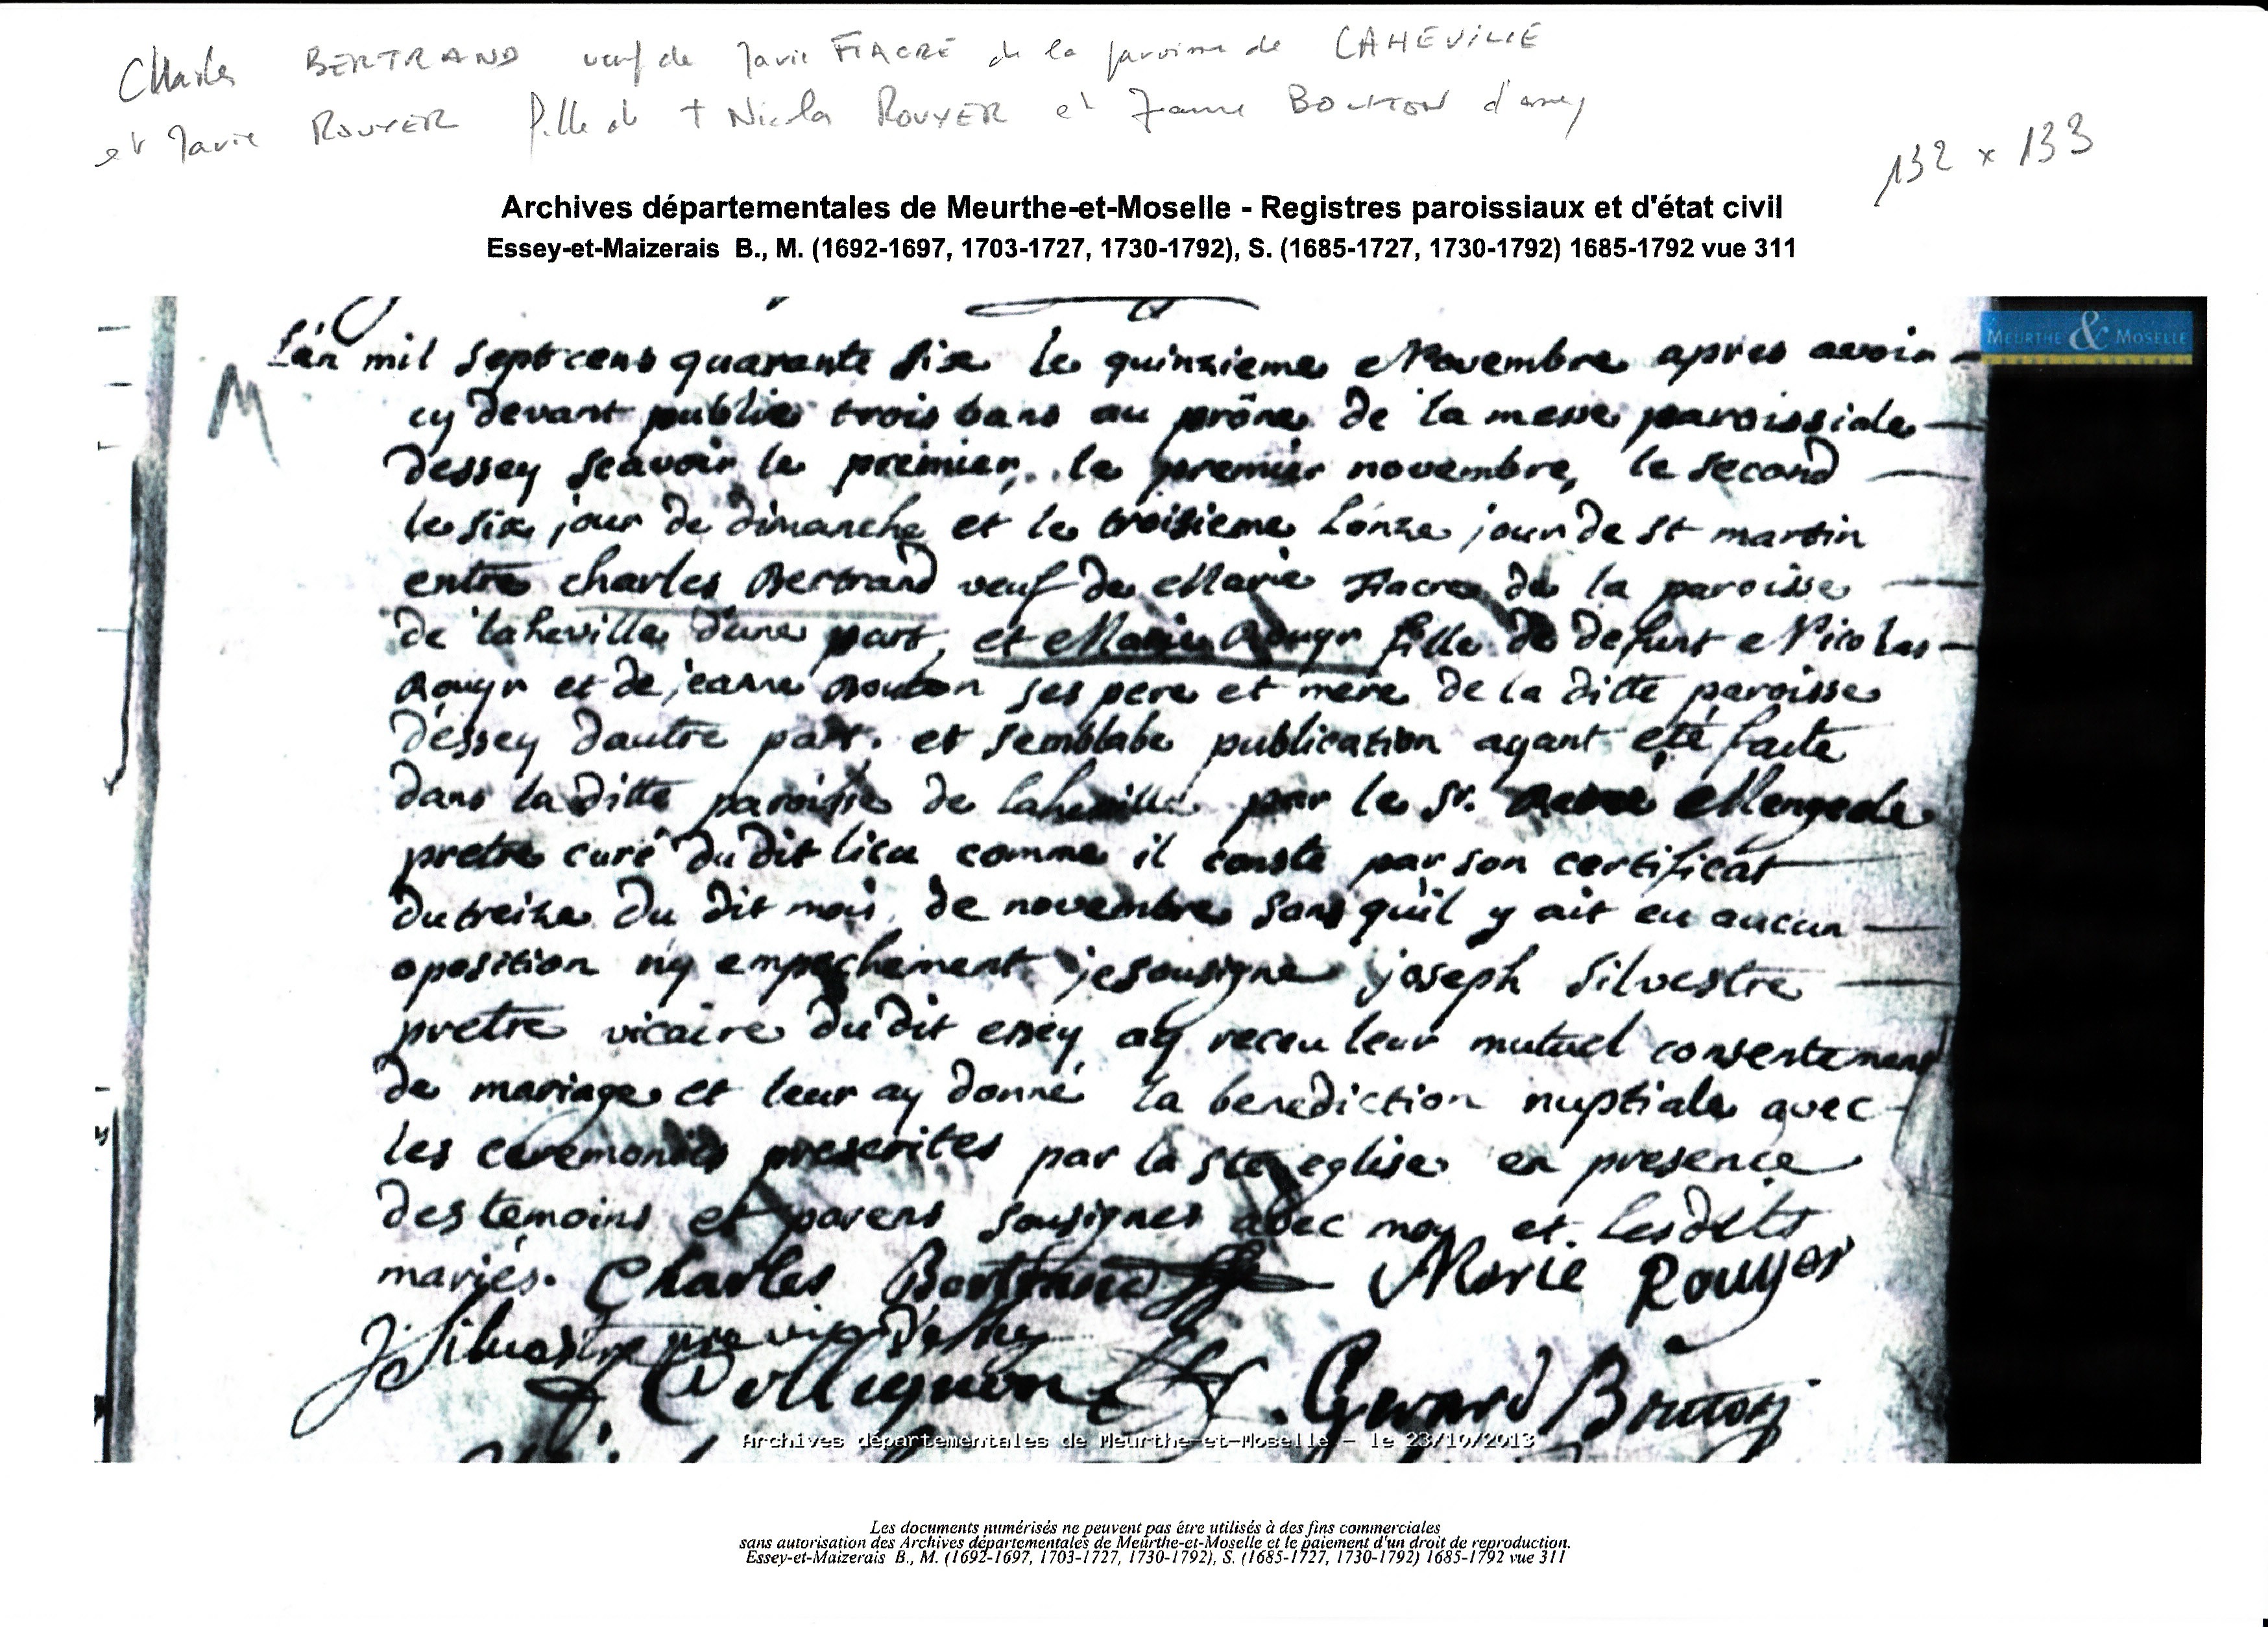 Charles BERTRAND veuf de Marie FIACRE de la paroisse de LAHEVILLE
et Marie ROUYER fille de + Nicolas ROUYER et Jeanne BOUTON d'essey
132 x 133
Archives départementales de Meurthe-et-Moselle - Registres paroissiaux et d'état civil
Essey-et-Maizerais B., M. (1692-1697, 1703-1727, 1730-1792), S. (1685-1727, 1730-1792) 1685-1792 vue 311
MEURTHE & MOSELLE
M
L'an mil sept cens quarante six le quinzieme Novembre apres avoir
cy devant publie trois bans au prône de la messe paroissiale
dessey scavoir le premier, le premier novembre, le second
le six jour de dimanche et le troisieme l'onze jour de st martin
entre charles Bertrand veuf de Marie Fiacre de la paroisse
de laheville d'une part, et Marie Rouyr fille de defunt Nicolas
Rouyr et de jeanne Bouton ses pere et mere de la ditte paroisse
d'essey dautre part. et semblabe publication ayant eté faite
dans la ditte paroisse de laheville par le Sr. Mengeole
pretre curé du dit lieu comme il conste par son certificat
du treize du dit mois de novembre sans qu'il y ait eu aucun
oposition ny empechement je sousigne joseph Silvestre
pretre vicaire du dit essey ay receu leur mutuel consentement
de mariage et leur ay donné la benediction nuptiale avec
les ceremonies prescrites par la ste eglise en presence
des temoins et parens sousignes avec moy et les dits
mariés. Charles Bertrand Marie Rouyer
J Silvestre pre vic d'essey
Collignon Gerard Bouton
Archives départementales de Meurthe-et-Moselle - le 23/10/2013
Les documents numérisés ne peuvent pas être utilisés à des fins commerciales
sans autorisation des Archives départementales de Meurthe-et-Moselle et le paiement d'un droit de reproduction.
Essey-et-Maizerais B., M. (1692-1697, 1703-1727, 1730-1792), S. (1685-1727, 1730-1792) 1685-1792 vue 311